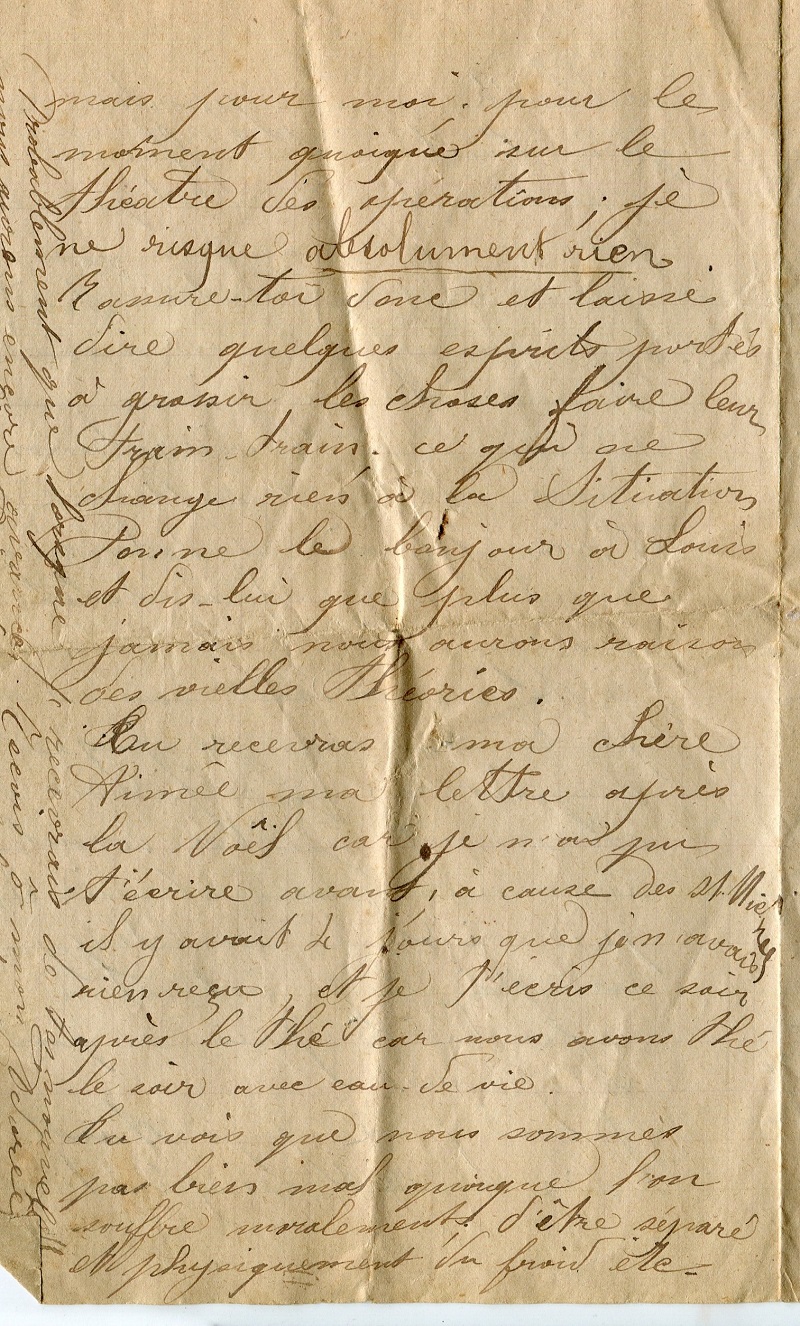 mais pour moi. pour le
moment quoique sur le
théatre des opérations, je
ne risque absolument rien
Rassure-toi donc et laisse
dire quelques esprits portés
à grossir les choses faire leur
train-train. ce qui ne
change rien à la Situation
Donne le bonjour à Louis
et dis-lui que plus que
jamais nous aurons raison
des vielles théories.
Tu recevras ma chère
Aimée ma lettre après
la Noël car je n'ai pu
t'écrire avant, à cause des
il y avait 4 jours que je n'avais
rien reçu, et je t'écris ce soir
après le thé car nous avons thé
le soir avec eau-de vie.
Tu vois que nous sommes
pas bien mal quoique l'on
souffre moralement d'être séparé
et physiquement du froid etc-
Probablement que lorsque recevras de tes
nous aurons encore avancé. Reçois ô mon